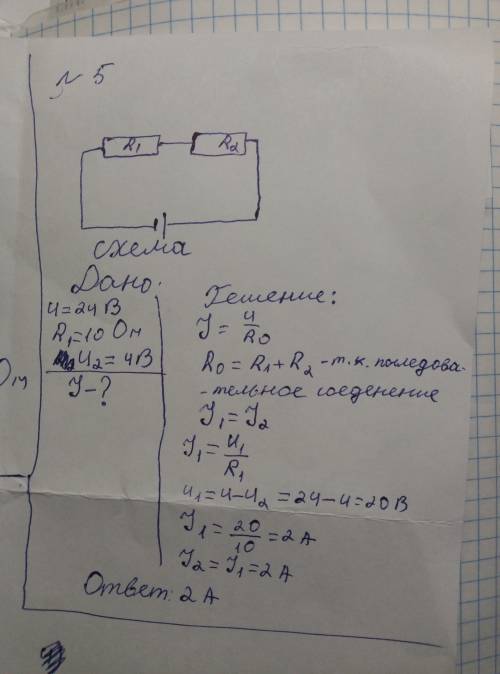 № 5
R₁ R₂
схема
Дано:
U = 24 В
R₁ = 10 Ом
U₂ = 4В
J - ?
Ом
Решение:
J = U/R₀
R₀ = R₁ + R₂ - т.к. последова-
-тельное соеденение
J₁ = J₂
J₁ = U₁/R₁
U₁ = U - U₂ = 24 - 4 = 20 В
J₁ = 20/10 = 2 А
J₂ = J₁ = 2 А
Ответ: 2 А